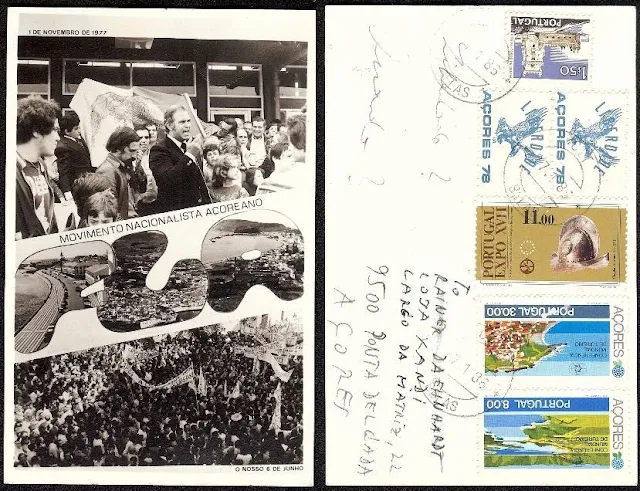 1 DE NOVEMBRO DE 1977
MOVIMENTO NACIONALISTA AÇOREANO
O NOSSO 6 DE JUNHO
PORTUGAL
1,50
AÇORES 78
AÇORES 78
PORTUGAL
EXPO XVII
11.00
AÇORES
PORTUGAL 30.00
CONFERÊNCIA
MUNDIAL
DE TURISMO
AÇORES
PORTUGAL 8.00
CONFERÊNCIA
MUNDIAL
DE TURISMO
TO
RAINER DAEHNHARDT
LOJA XANDI
LARGO DA MATRIZ, 22
9500 PONTA DELGADA
AÇORES